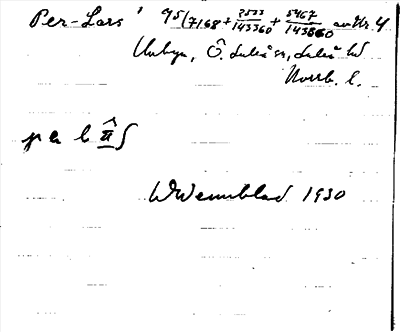 Per-Lars' 95/7168 + 2533/143360 + 5467/143360 av Nr 4
Unbyn, Ö. Luleå sn, Luleå hd
Norrb. l.
W Wennblad 1930